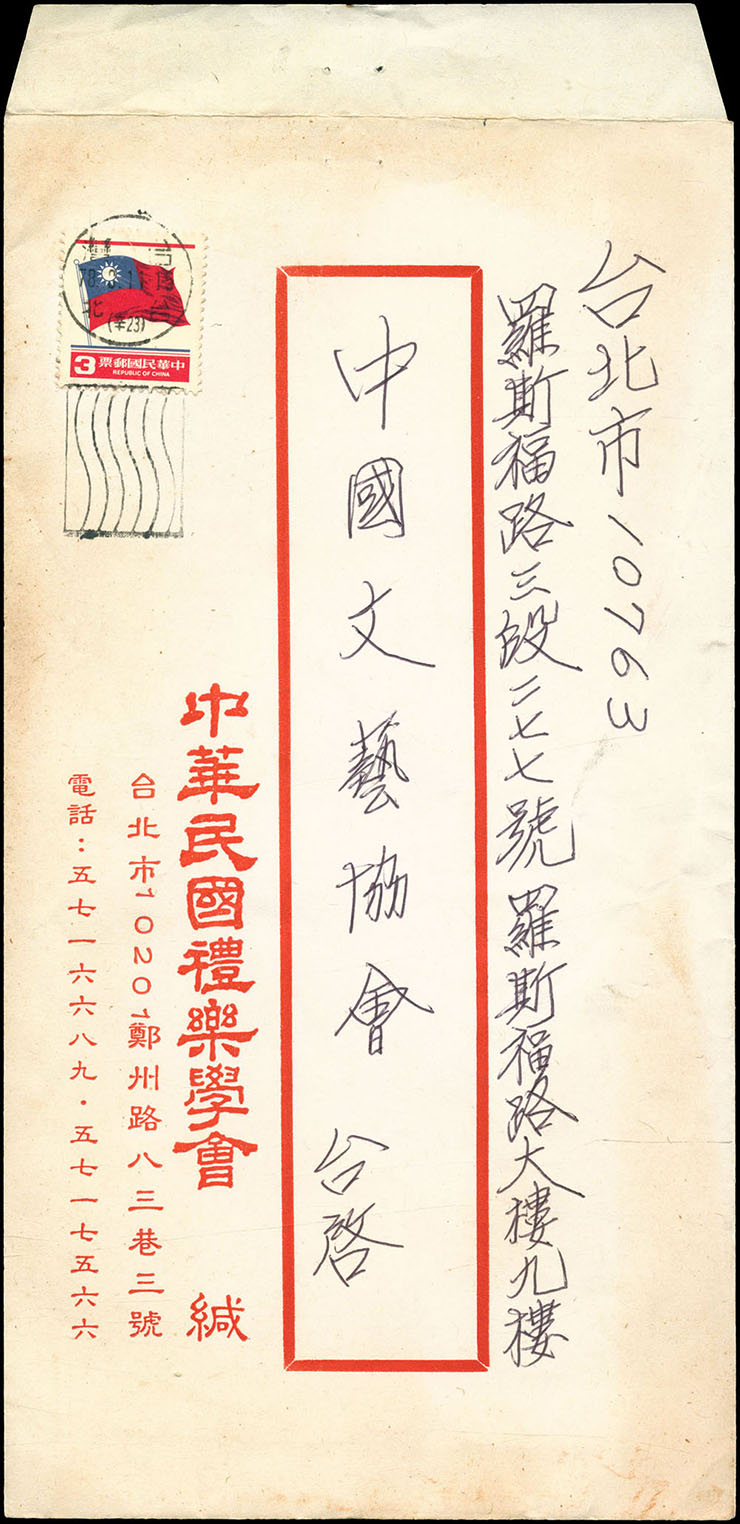 台北市10763
羅斯福路三段二七七號羅斯福路大樓九樓
中國文藝協會 台啓
中華民國禮樂學會 緘
台北市10201鄭州路八三巷三號
電話：五七一六六八九・五七一七五六六
3 中華民國郵票
REPUBLIC OF CHINA
臺灣
北